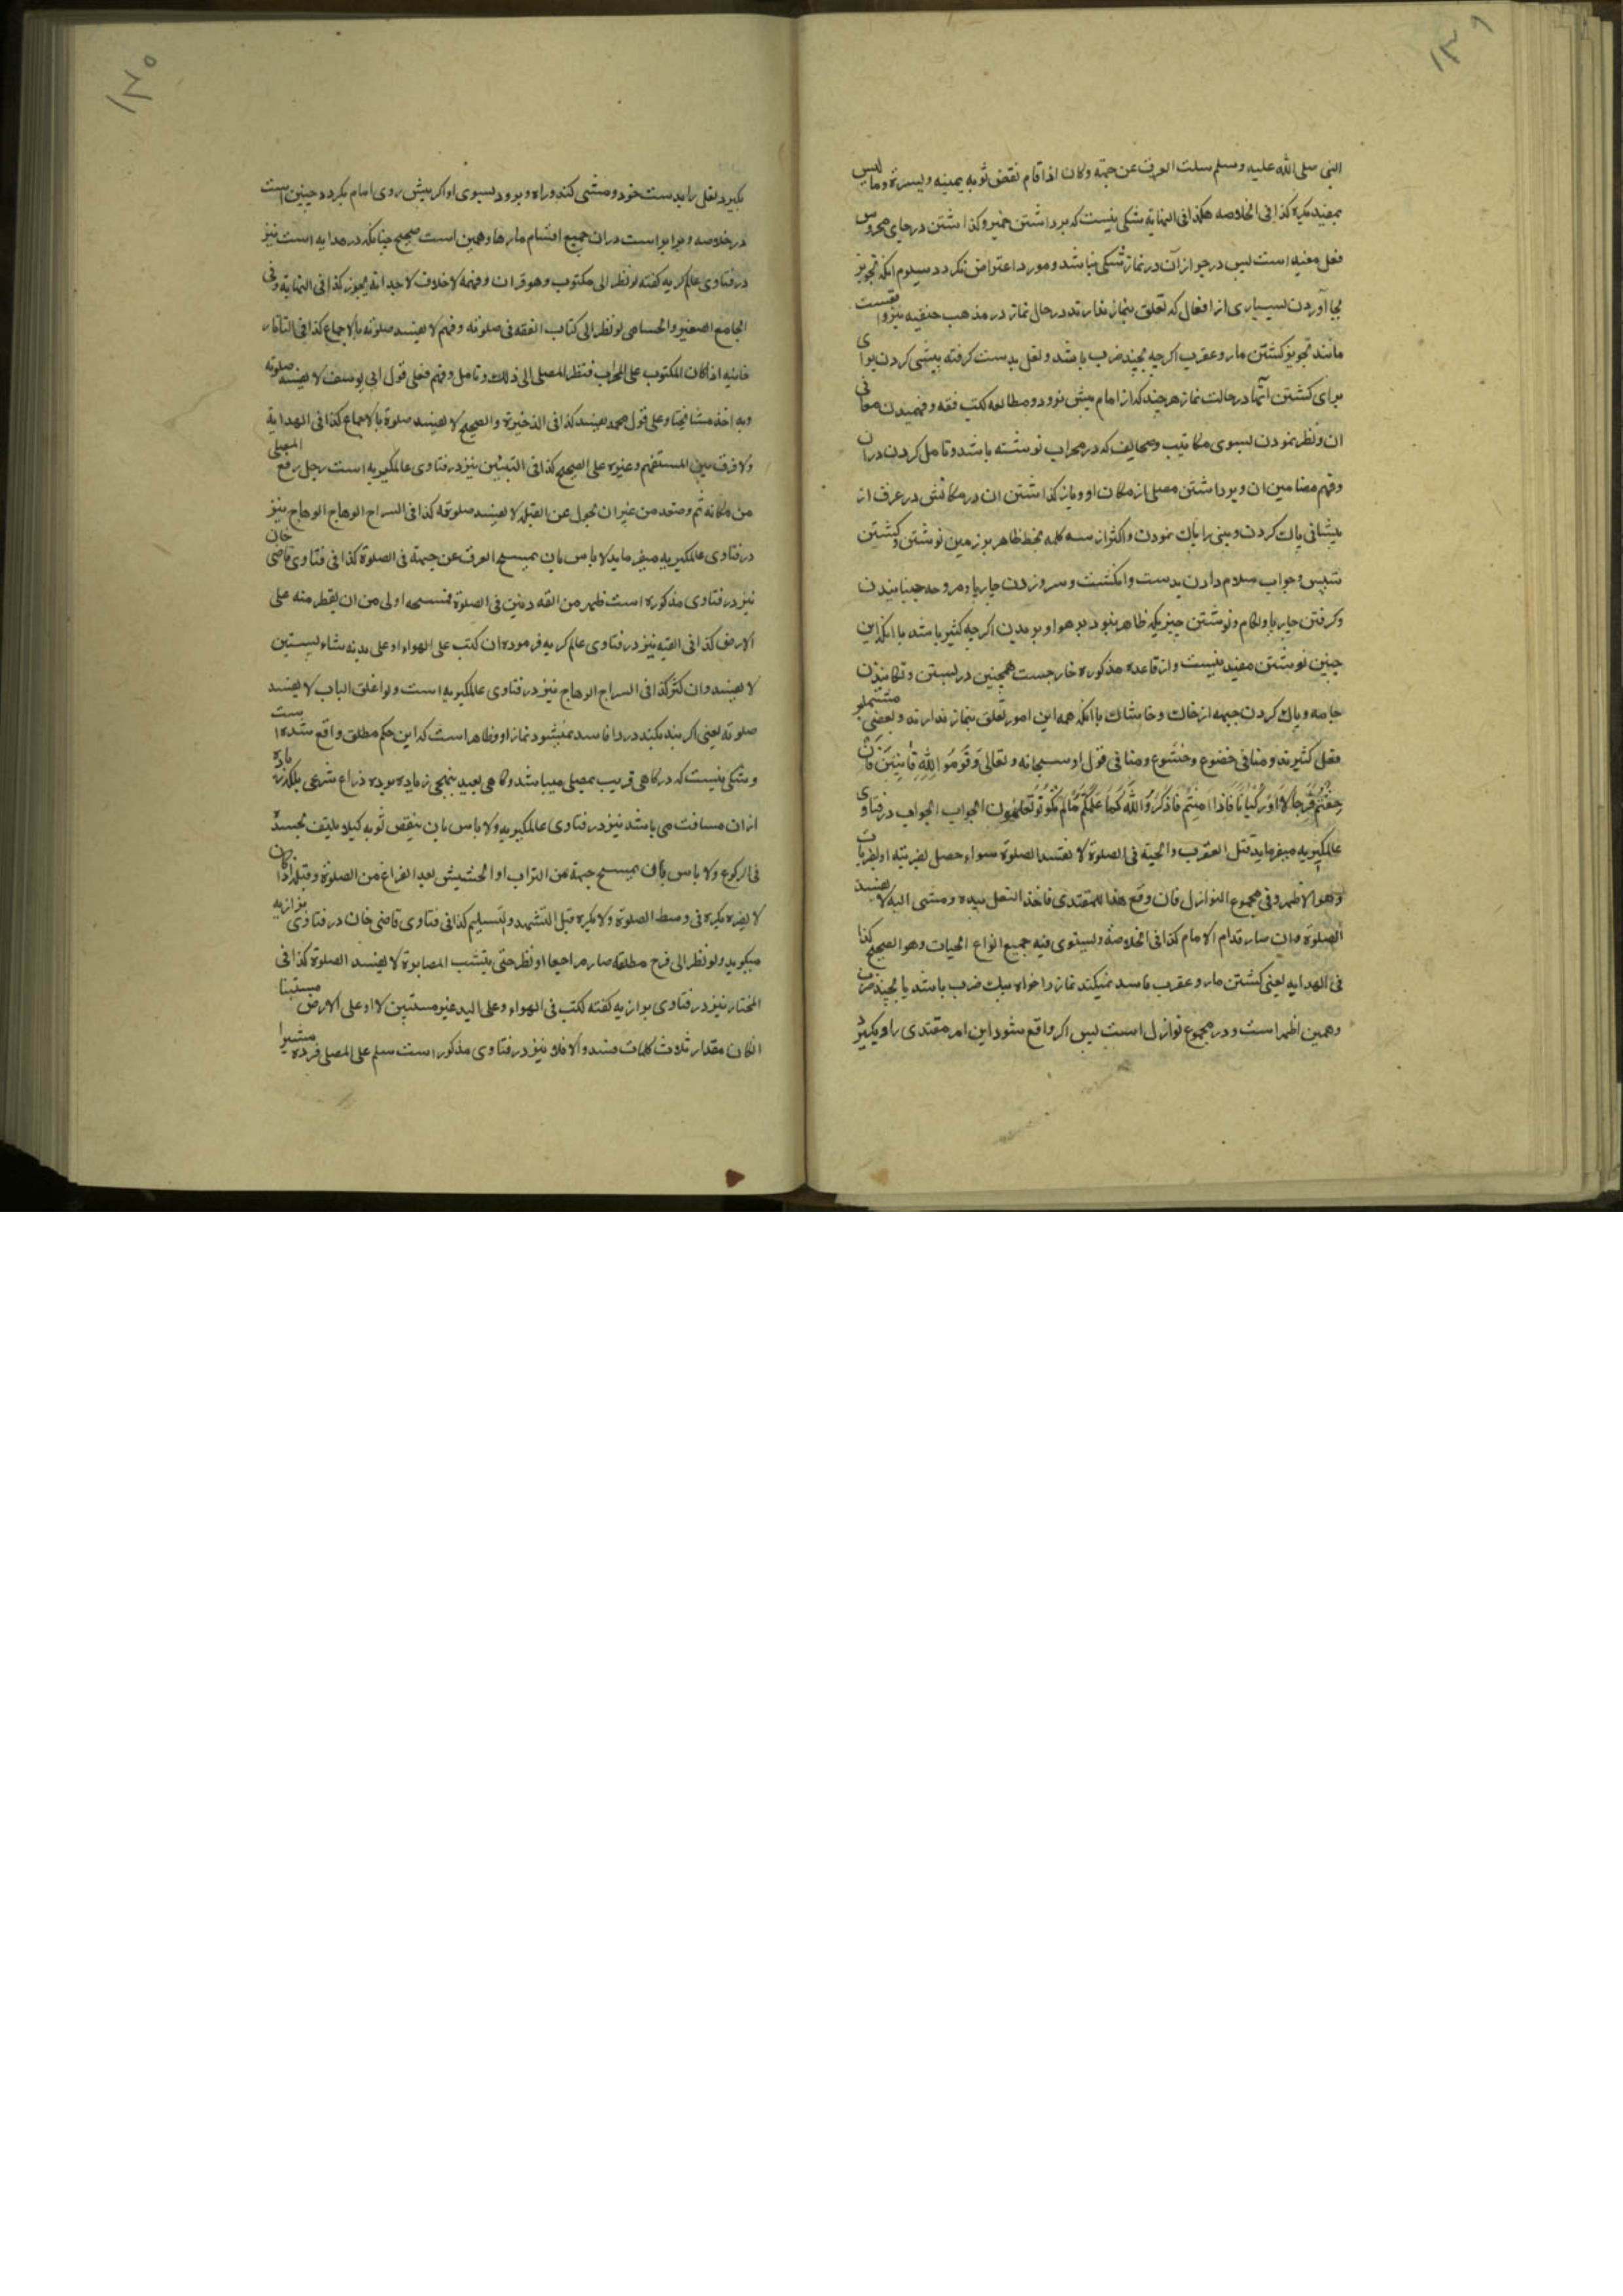 ۱۳۹
النبی صلی الله علیه وسلم سلت العرق عن جبهته وکان اذا قام نفض ثوبه یمینه ویسرة وما لیس
بمفید یکره کذا فی الخلاصه هکذا فی النهایة شکی نیست که برداشتن خمیر وکذاشتن در جای محروس
فعل مفید است پس در جواز آن در نماز شکی نباشد ومورد اعتراض نکردد سیوم انکه تجویز
بجا آوردن بسیاری از افعال که تعلق بنماز ندارند در حال نماز در مذهب حنفیه نیز واقعست
مانند تجویز کشتن مار وعقرب اکرچه بچند ضرب باشد ونعل بدست کرفته پیشی کردن برای
برای کشتن آنها در حالت نماز هرچند که از امام پیش نرود ومطالعه کتب فقه وفهمیدن معانی
ان ونظر نمودن بسوی مکاتیب وصحایف که در محراب نوشته باشد وتامل کردن دران
وفهم مضامین ان وبرداشتن مصلی از مکان او وباز کذاشتن ان در مکانش در عرف از
پیشانی پاک کردن وبینی را پاک نمودن واکثر از سه کلمه بخط ظاهر بر زمین نوشتن وکشتن
شپس وجواب سلام دادن بدست وانکشت وسر وزدن چارپا ومروحه جنبانیدن
وکرفتن چارپا ولکام ونوشتن چیزیکه ظاهر نبود بر هوا وبر بدن اکرچه کثیر باشد با انکه این
چنین نوشتن مفید نیست واز قاعده مذکوره خارجست همچنین در بستن وتکانیدن
جامه وپاک کردن جبهه از خاک وخاشاک با انکه همه این امور تعلق بنماز ندارند وبعضی مشتملبر
فعل کثیرند ومنافی خضوع وخشوع ومنافی قول او سبحانه وتعالی وَقُومُوا لِلَّهِ قَانِتِينَ فَإِنْ
خِفْتُمْ فَرِجَالًا أَوْ رُكْبَانًا فَإِذَا أَمِنْتُمْ فَاذْكُرُوا اللَّهَ كَمَا عَلَّمَكُمْ مَا لَمْ تَكُونُوا تَعْلَمُونَ الجواب الجواب در فتاوی
عالمکیریه میفرماید قتل العقرب والحیة فی الصلوة لا تفسد الصلوة سواء حصل بضربته او بضربات
وهو الاظهر وفی مجموع النوازل فان وقع هذا للمقتدی فاخذ النعل بیده ومشی الیه لا یفسد
الصلوة وان صار قدام الامام کذا فی الخلاصة ویستوی فیه جمیع انواع الحیات وهو الصحیح کذا
فی الهدایه یعنی کشتن مار وعقرب فاسد نمیکند نماز را خواه بیک ضرب باشد یا بچند ضرب
وهمین اظهر است ودر مجموع نوازل است پس اکر واقع شود این امر مقتدی را وبکیرد
۱۴۰
بکیرد نعل را بدست خود ومشی کند وراه وبرود بسوی او اکر پیش روی امام بکردد چنین است
در خلاصه وبرابر است دران جمیع اقسام مارها وهمین است صحیح چنانکه در هدایه است نیز
در فتاوی عالمکریه کفته لو نظر الی مکتوب وهو قران وفهمه لا خلاف لاحد انه یجوز کذا فی النهایة وفی
الجامع الصغیر والحسامی لو نظر الی کتاب الفقه فی صلوته وفهم لا یفسد صلوته بالاجماع کذا فی التاتار
خانیه اذا کان المکتوب علی المحراب فنظر المصلی الی ذلک وتامل وفهم فعلی قول ابی یوسف لا یفسد صلوته
وبه اخذ مشایخنا وعلی قول محمد یفسد کذا فی الذخیرة والصحیح لا یفسد صلوة بالاجماع کذا فی الهدایة
ولا فرق بین المستفهم وغیره علی الصحیح کذا فی التبیین نیز در فتاوی عالمکیریه است رجل رفع المصلی
من مکانه ثم وضعه من غیر ان تحول عن القبلة لا یفسد صلوته کذا فی السراج الوهاج الوهاج نیز
در فتاوی عالمکیریه میفرماید لا باس بان یمسح العرق عن جبهة فی الصلوة کذا فی فتاوی قاضی خان
نیز در فتاوی مذکوره است ظهر من انفه دنین فی الصلوة فمسحه اولی من ان یقطر منه علی
الارض کذا فی القنیه نیز در فتاوی عالم کریه فرموده ان کتب علی الهواء او علی بدنه بشاء لیستبین
لا یفسد وان کثر کذا فی السراج الوهاج نیز در فتاوی عالمکیریه است ولو اغلق الباب لا یفسد
صلوته یعنی اکر بند بکند در را فاسد نمیشود نماز او وظاهر است که این حکم مطلق واقع شده است
وشکی نیست که در کاهی قریب بمصلی میباشد وکاهی بعید بنهجی زیاده بوده ذراع شرعی بلکه زیاده
ازان مسافت می باشد نیز در فتاوی عالمکیریه ولا باس بان ینفض ثوبه کیلا یلتف بجسده
فی الرکوع ولا باس بان یمسح جبهة من التراب او الحشیش بعد الفراغ من الصلوة وقبله اذا کان
لا یضره یکره فی وسط الصلوة ولا یکره قبل التشهد وتسلیم کذا فی فتاوی قاضی خان در فتاوی بزازیه
میکوید ولو نظر الی فرج مطلقه صار مراجعا او نظر حتی یثبت المصاهرة لا یفسد الصلوة کذا فی
المختار نیز در فتاوی بزازیه کفته کتب فی الهواء وعلی الید غیر مستبین لا او علی الارض مستبینا
انکان مقدار ثلاث کلمات فسد والا فلا نیز در فتاوی مذکور است سلم علی المصلی فرده مشیرا